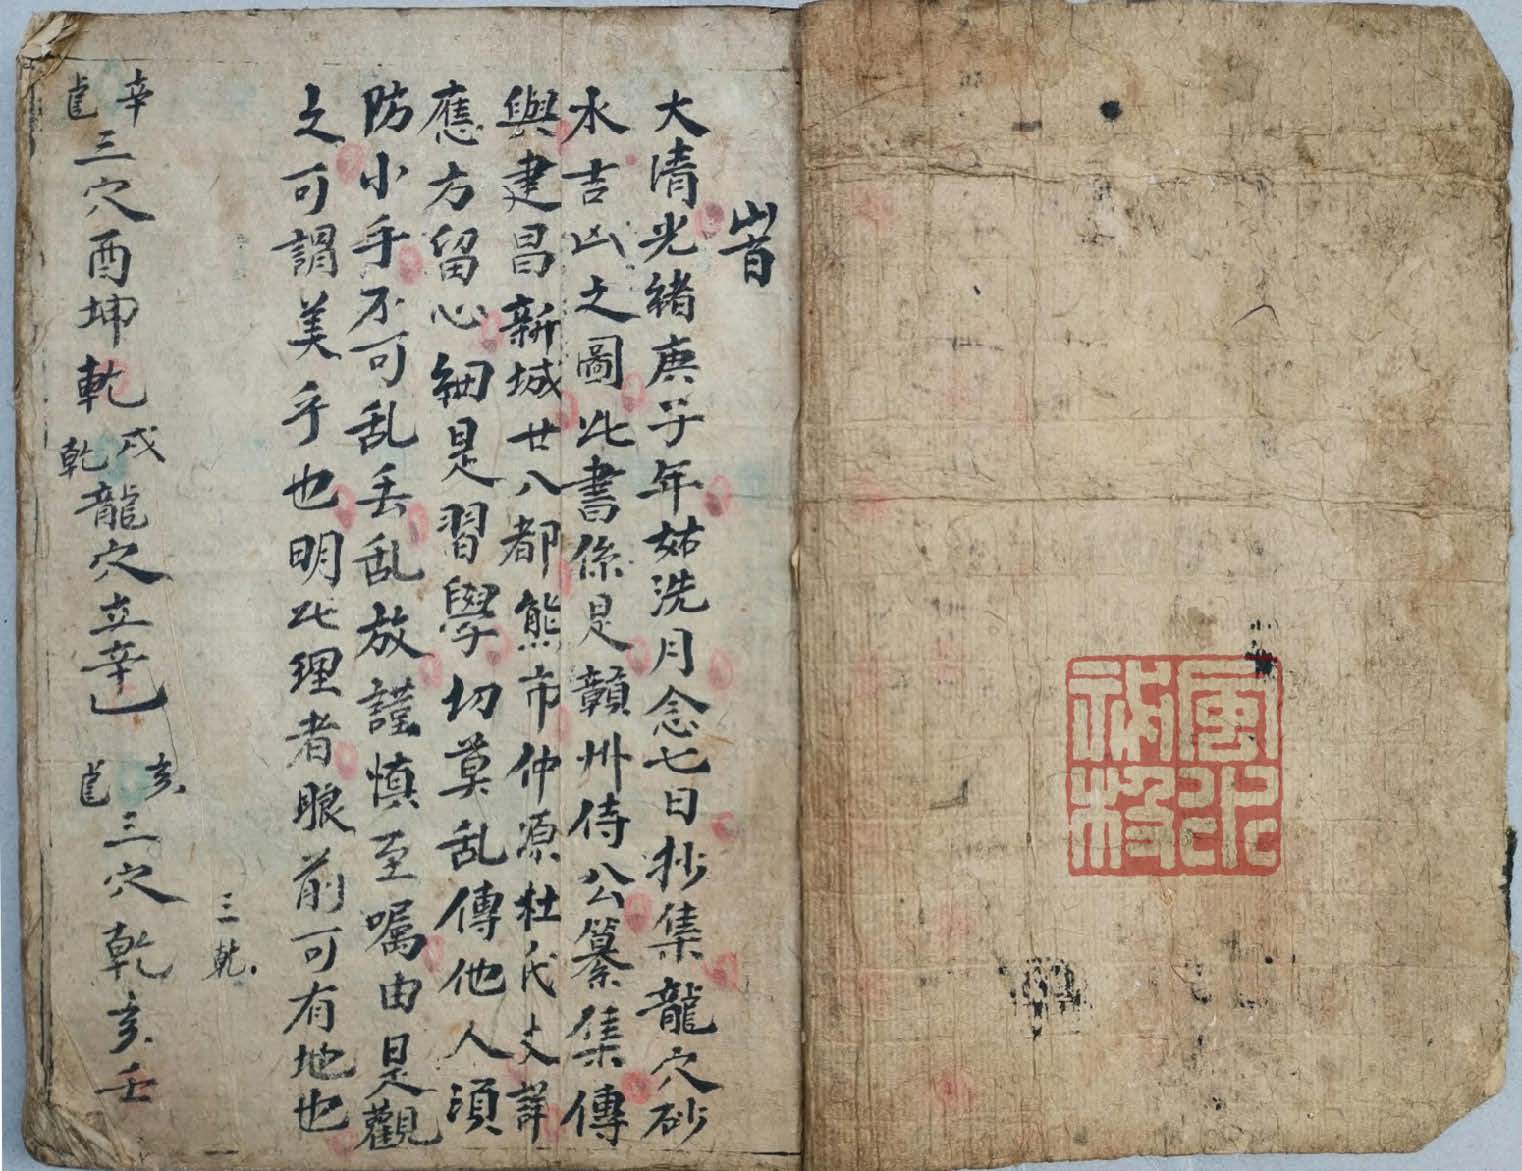 大清光緒庚子年姑洗月念七日抄集龍穴砂
水吉凶之圖此書係是贛州侍公纂集傳
與建昌新城廿八都熊市仲源杜氏丈譯
應方留心細是習學切莫乱傳他人須
防小手不可乱丢乱放謹慎至囑由是觀
之可謂美乎也明此理者眼前可有地也
三乾
辛
三穴酉坤乾
戌
乾
龍穴立辛
亥
三穴乾亥壬
風水